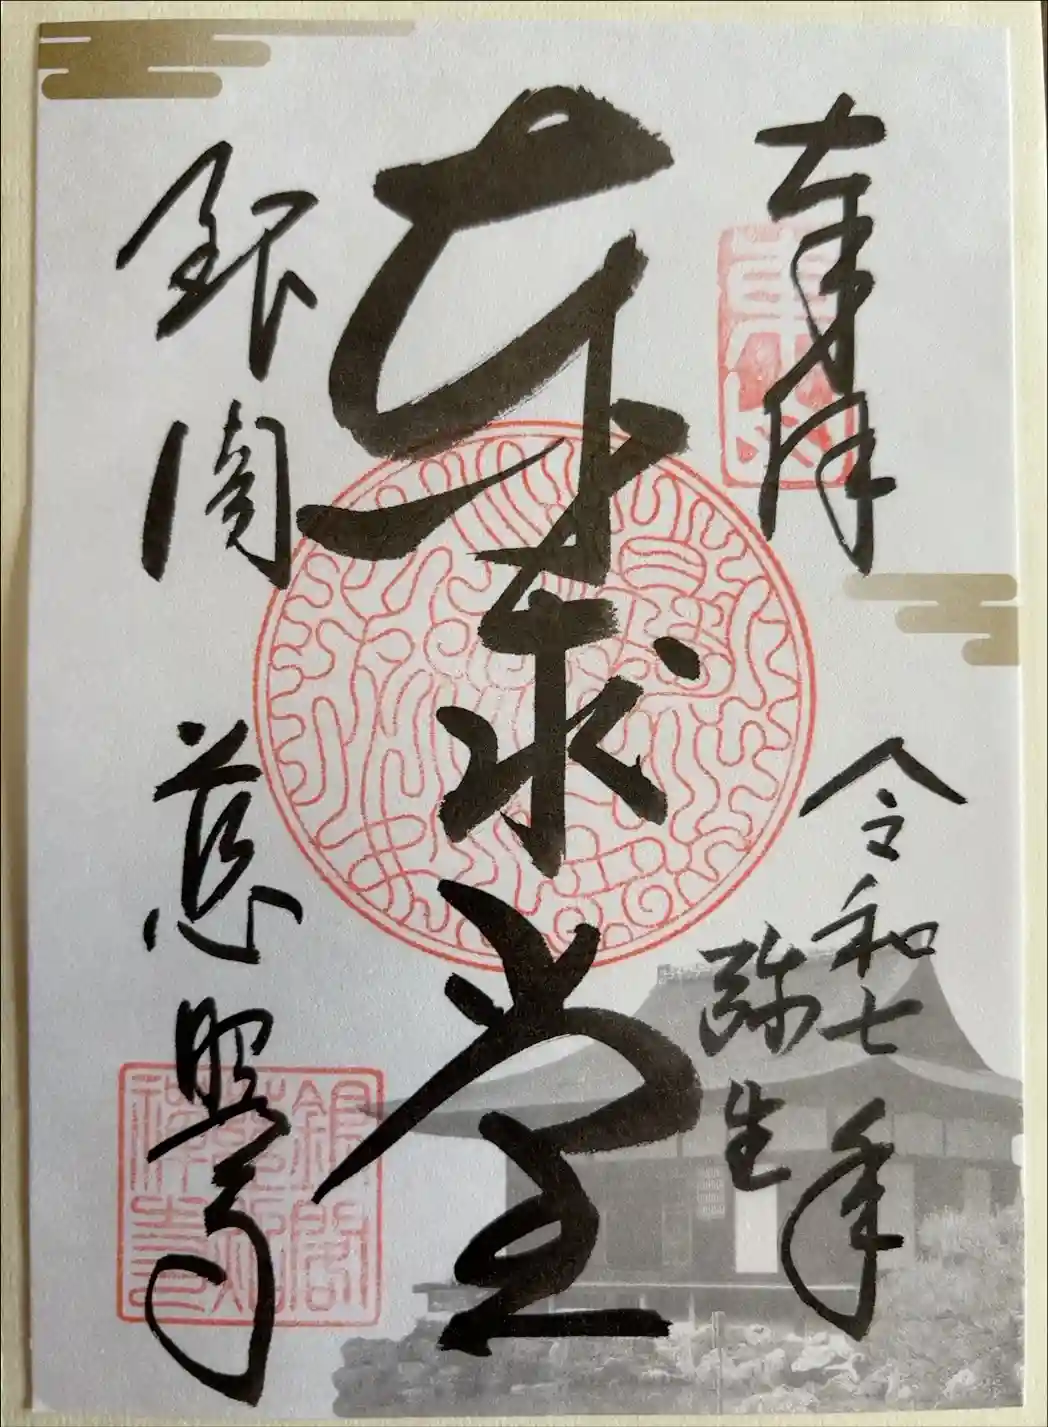 奉拝
令和七年
弥生
東求堂
銀閣
慈照寺
銀閣
慈照
禅寺